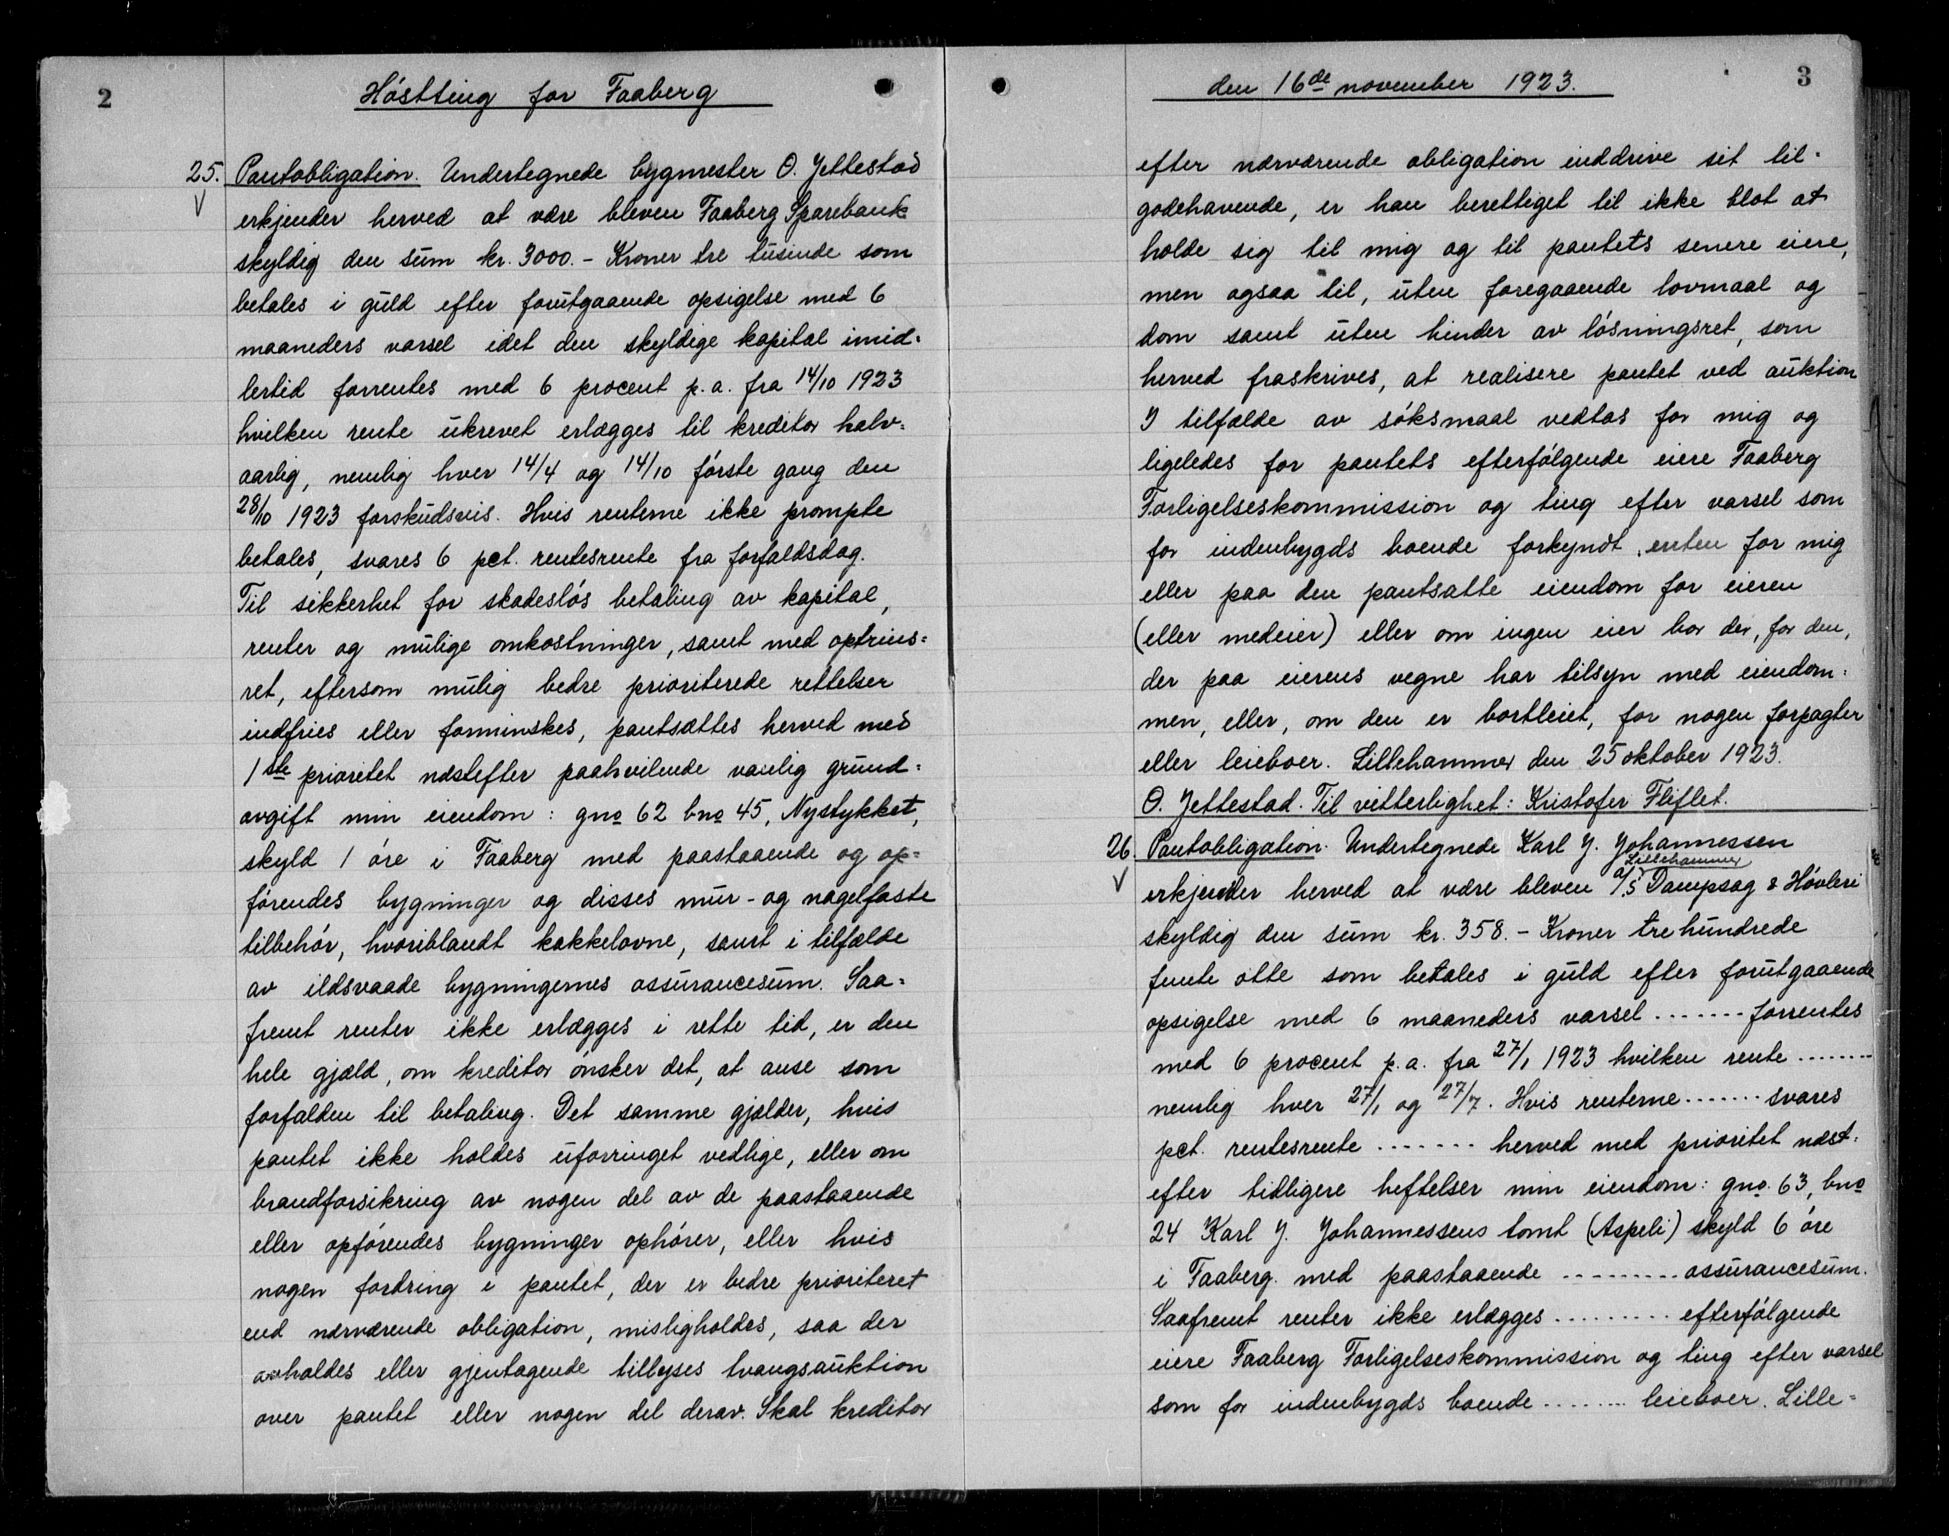 2
Høstting for Faaberg
25. Pantobligation. Undertegnede bygmester O. Jettestad
erkjender herved at være bleven Faaberg Sparebank
skyldig den sum kr. 3000.- Kroner tre tusinde som
betales i guld efter forutgaaende opsigelse med 6
maaneders varsel idet den skyldige kapital imid-
lertid forrentes med 6 procent p.a. fra 14/10 1923
hvilken rente ukrevet erlægges til kreditor halv-
aarlig, nemlig hver 14/4 og 14/10 første gang den
28/10 1923 forskudsvis. Hvis renterne ikke prompte
betales, svares 6 pct. rentesrente fra forfaldsdag.
Til sikkerhet for skadesløs betaling av kapital,
renter og mulige omkostninger, samt med optrins-
ret, eftersom mulig bedre prioriterede rettelser
indfries eller forminskes, pantsættes herved med
1ste prioritet næstefter paahvilende vanlig grund-
avgift min eiendom: gno 62 bno 45, Nystykket,
skyld 1 øre i Faaberg med paastaaende og op-
førendes bygninger og disses mur- og nagelfaste
tilbehør, hvoriblandt kakkelovne, samt i tilfælde
av ildsvaade bygningernes assurancesum. Saa-
fremt renter ikke erlægges i rette tid, er den
hele gjæld, om kreditor ønsker det, at anse som
forfalden til betaling. Det samme gjælder, hvis
pantet ikke holdes uforringet vedlige, eller om
brandforsikring av nogen del av de paastaaende
eller opførendes bygninger ophører, eller hvis
nogen fordring i pantet, der er bedre prioriteret
end nærværende obligation, misligholdes, saa der
avholdes eller gjentagende tillyses tvangsauktion
over pantet eller nogen del derav. Skal kreditor
den 16de november 1923.
3
efter nærværende obligation inddrive sit til-
godehavende, er han berettiget til ikke blot at
holde sig til mig og til pantets senere eiere,
men ogsaa til, uten foregaaende lovmaal og
dom samt uten hinder av løsningsret, som
herved fraskrives, at realisere pantet ved auktion
I tilfælde av søksmaal vedtas for mig og
ligeledes for pantets efterfølgende eiere Faaberg
Forligelseskommission og ting efter varsel som
for indenbygds boende forkyndt enten for mig
eller paa den pantsatte eiendom for eieren
(eller medeier) eller om ingen eier bor der, for den,
der paa eierens vegne har tilsyn med eiendom-
men, eller, om den er bortleiet, for nogen forpagter
eller leieboer. Lillehammer den 25 oktober 1923.
O. Jettestad. Til vitterlighet: Kristofer Fliflet.
26. Pantobligation. Undertegnede Karl J. Johannessen
Lillehammer
erkjender herved at være bleven A/S Dampsag & Høvleri
skyldig den sum kr. 358.- Kroner tre hundrede
femte otte som betales i guld efter forutgaaende
opsigelse med 6 maaneders varsel ....... forrentes
med 6 procent p.a. fra 27/1 1923 hvilken rente .......
nemlig hver 27/1 og 27/7. Hvis renterne ....... svares
pct. rentesrente ....... herved med prioritet næst-
efter tidligere heftelser min eiendom: gno. 63, bno
24 Karl J. Johannessens tomt (Aspeli) skyld 6 øre
i Faaberg. med paastaaende ......... assurancesum.
Saafremt renter ikke erlægges ......... efterfølgende
eiere Faaberg Forligelseskommission og ting efter varsel
som for indenbygds boende ........ leieboer. Lille-